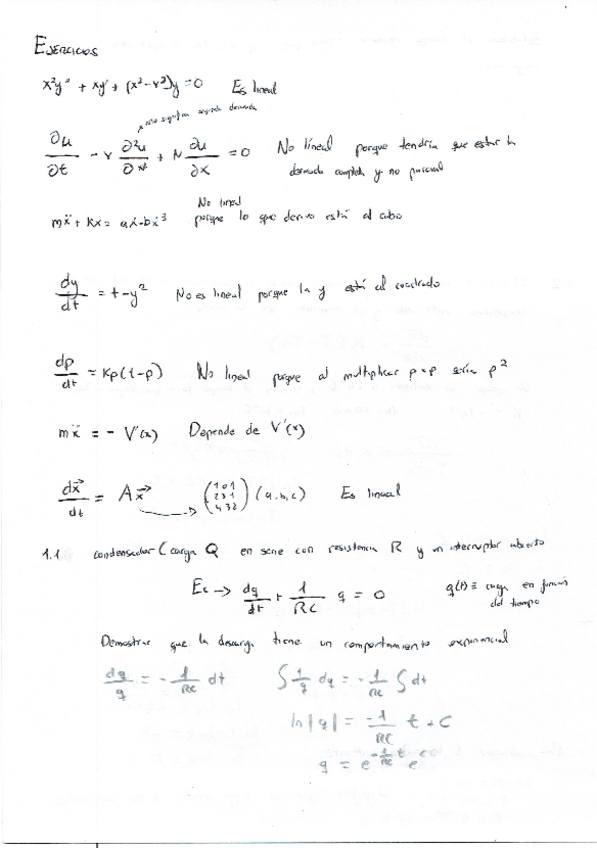 EJERCICIOS
x²y'' + xy' + (x²-ν²)y = 0 Es lineal
significan segunda derivada
∂u/∂t - ν ∂²u/∂x² + N ∂u/∂x = 0 No lineal porque tendría que estar la
derivada completa y no parcial
No lineal
mẍ + Kx = aẋ - bẋ³ porque lo que derivo está al cubo
dy/dt = t - y² No es lineal porque la y está al cuadrado
dp/dt = Kp(1-p) No lineal porque al multiplicar p*p sería p²
mẍ = - V'(x) Depende de V'(x)
dx⃗/dt = Ax⃗ → (1 0 1 / 2 3 1 / 4 3 2) (a,b,c) Es lineal
1.1 condensador C carga Q en serie con resistencia R y un interruptor abierto
Ec → dq/dt + 1/RC q = 0 q(t) ≡ carga en función
del tiempo
Demostrar que la descarga tiene un comportamiento exponencial
dq/q = - 1/RC dt ∫ 1/q dq = - 1/RC ∫ dt
ln|q| = - 1/RC t + C
q = e^(-1/RC t) e^C